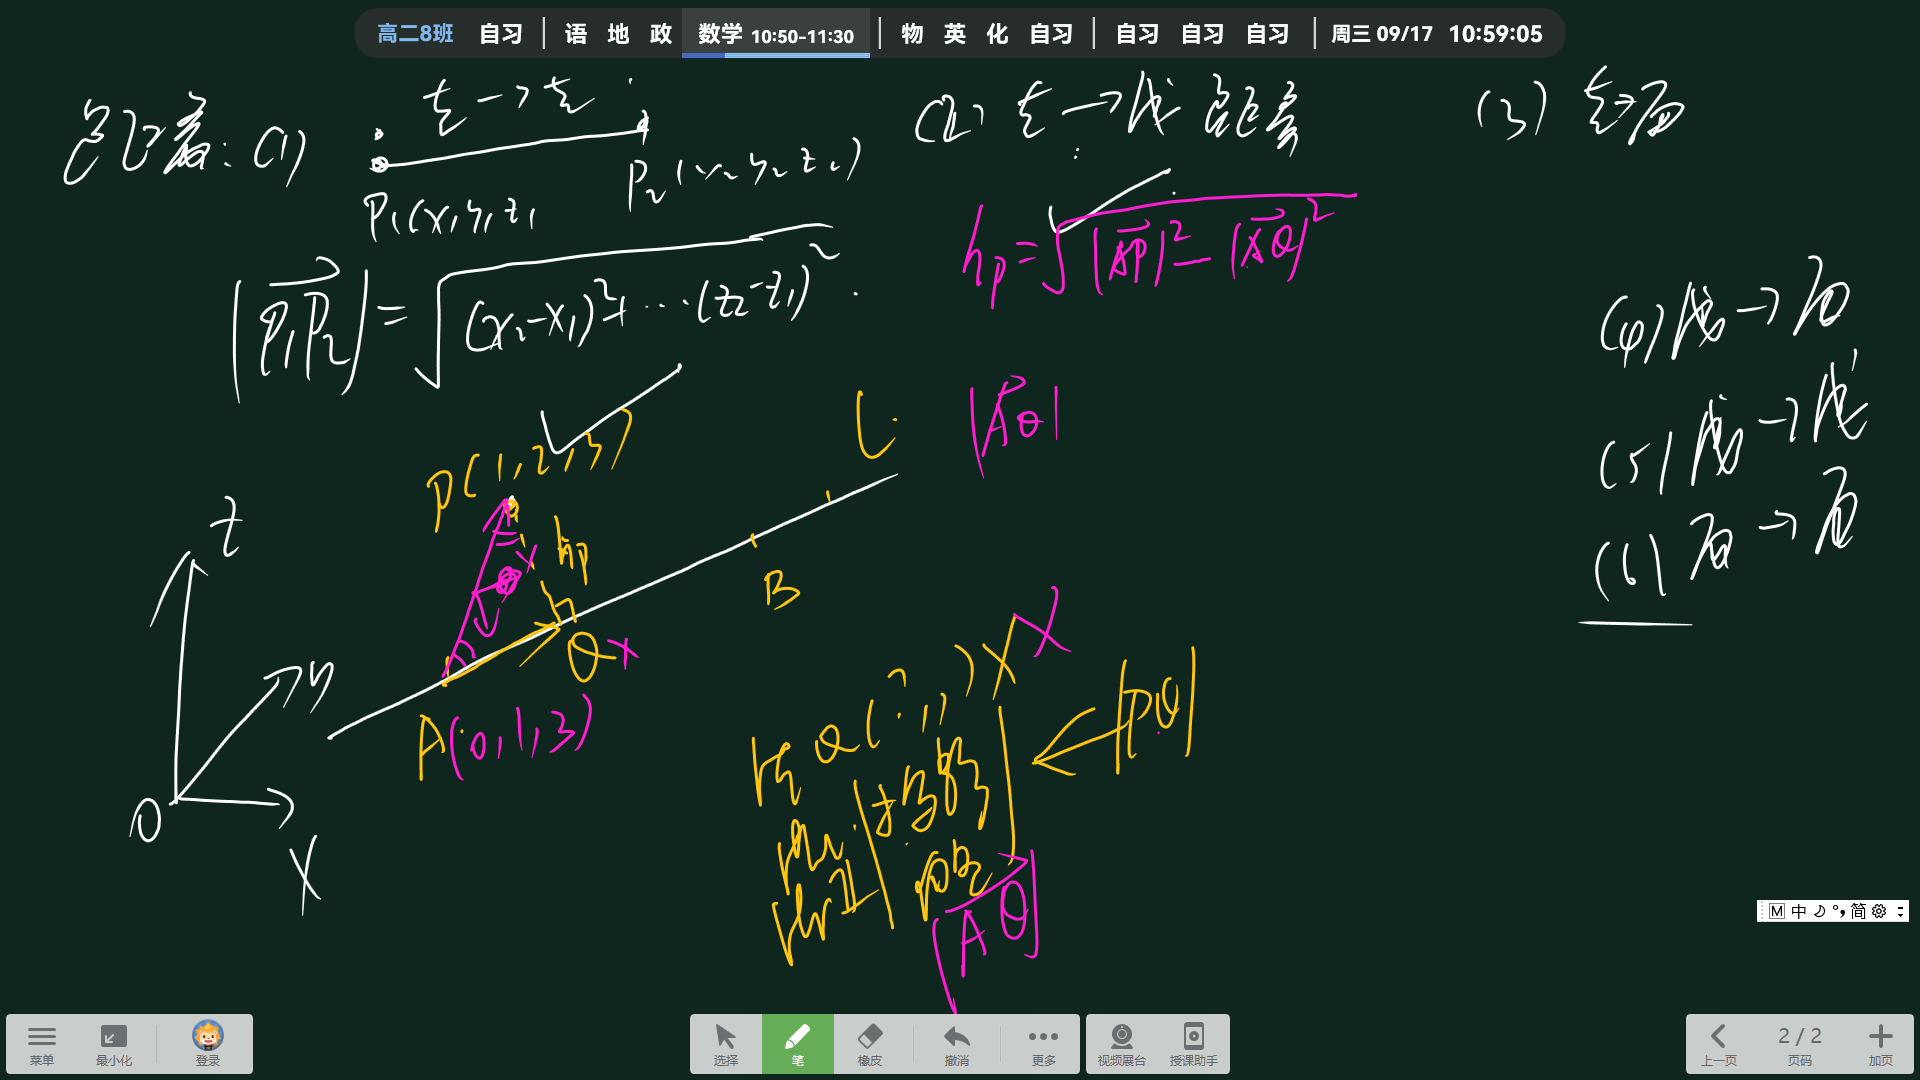 高二8班 自习 | 语 地 政 数学 10:50-11:30 | 物 英 化 自习 | 自习 自习 自习 | 周三 09/17 10:59:05
距离: (1) 点→点
(2) 点→线 距离
(3) 点→面
P₁(x₁y₁z₁
P₂(x₂y₂z₂)
|P₁P₂|=√(x₂-x₁)²+…(z₂-z₁)²
hp=√|AP|²-|AQ|²
(4) 线→面
(5) 线→线
(6) 面→面
|AQ|
P(1,2,3)
L
z
hp
B
y
Q x
A(0,1,3)
Q(?,,) X
|PQ|
O
x
|AQ|
M 中 简
菜单 最小化 登录
选择 笔 橡皮 撤消 更多
视频展台 授课助手
上一页 2 / 2 页码 加页